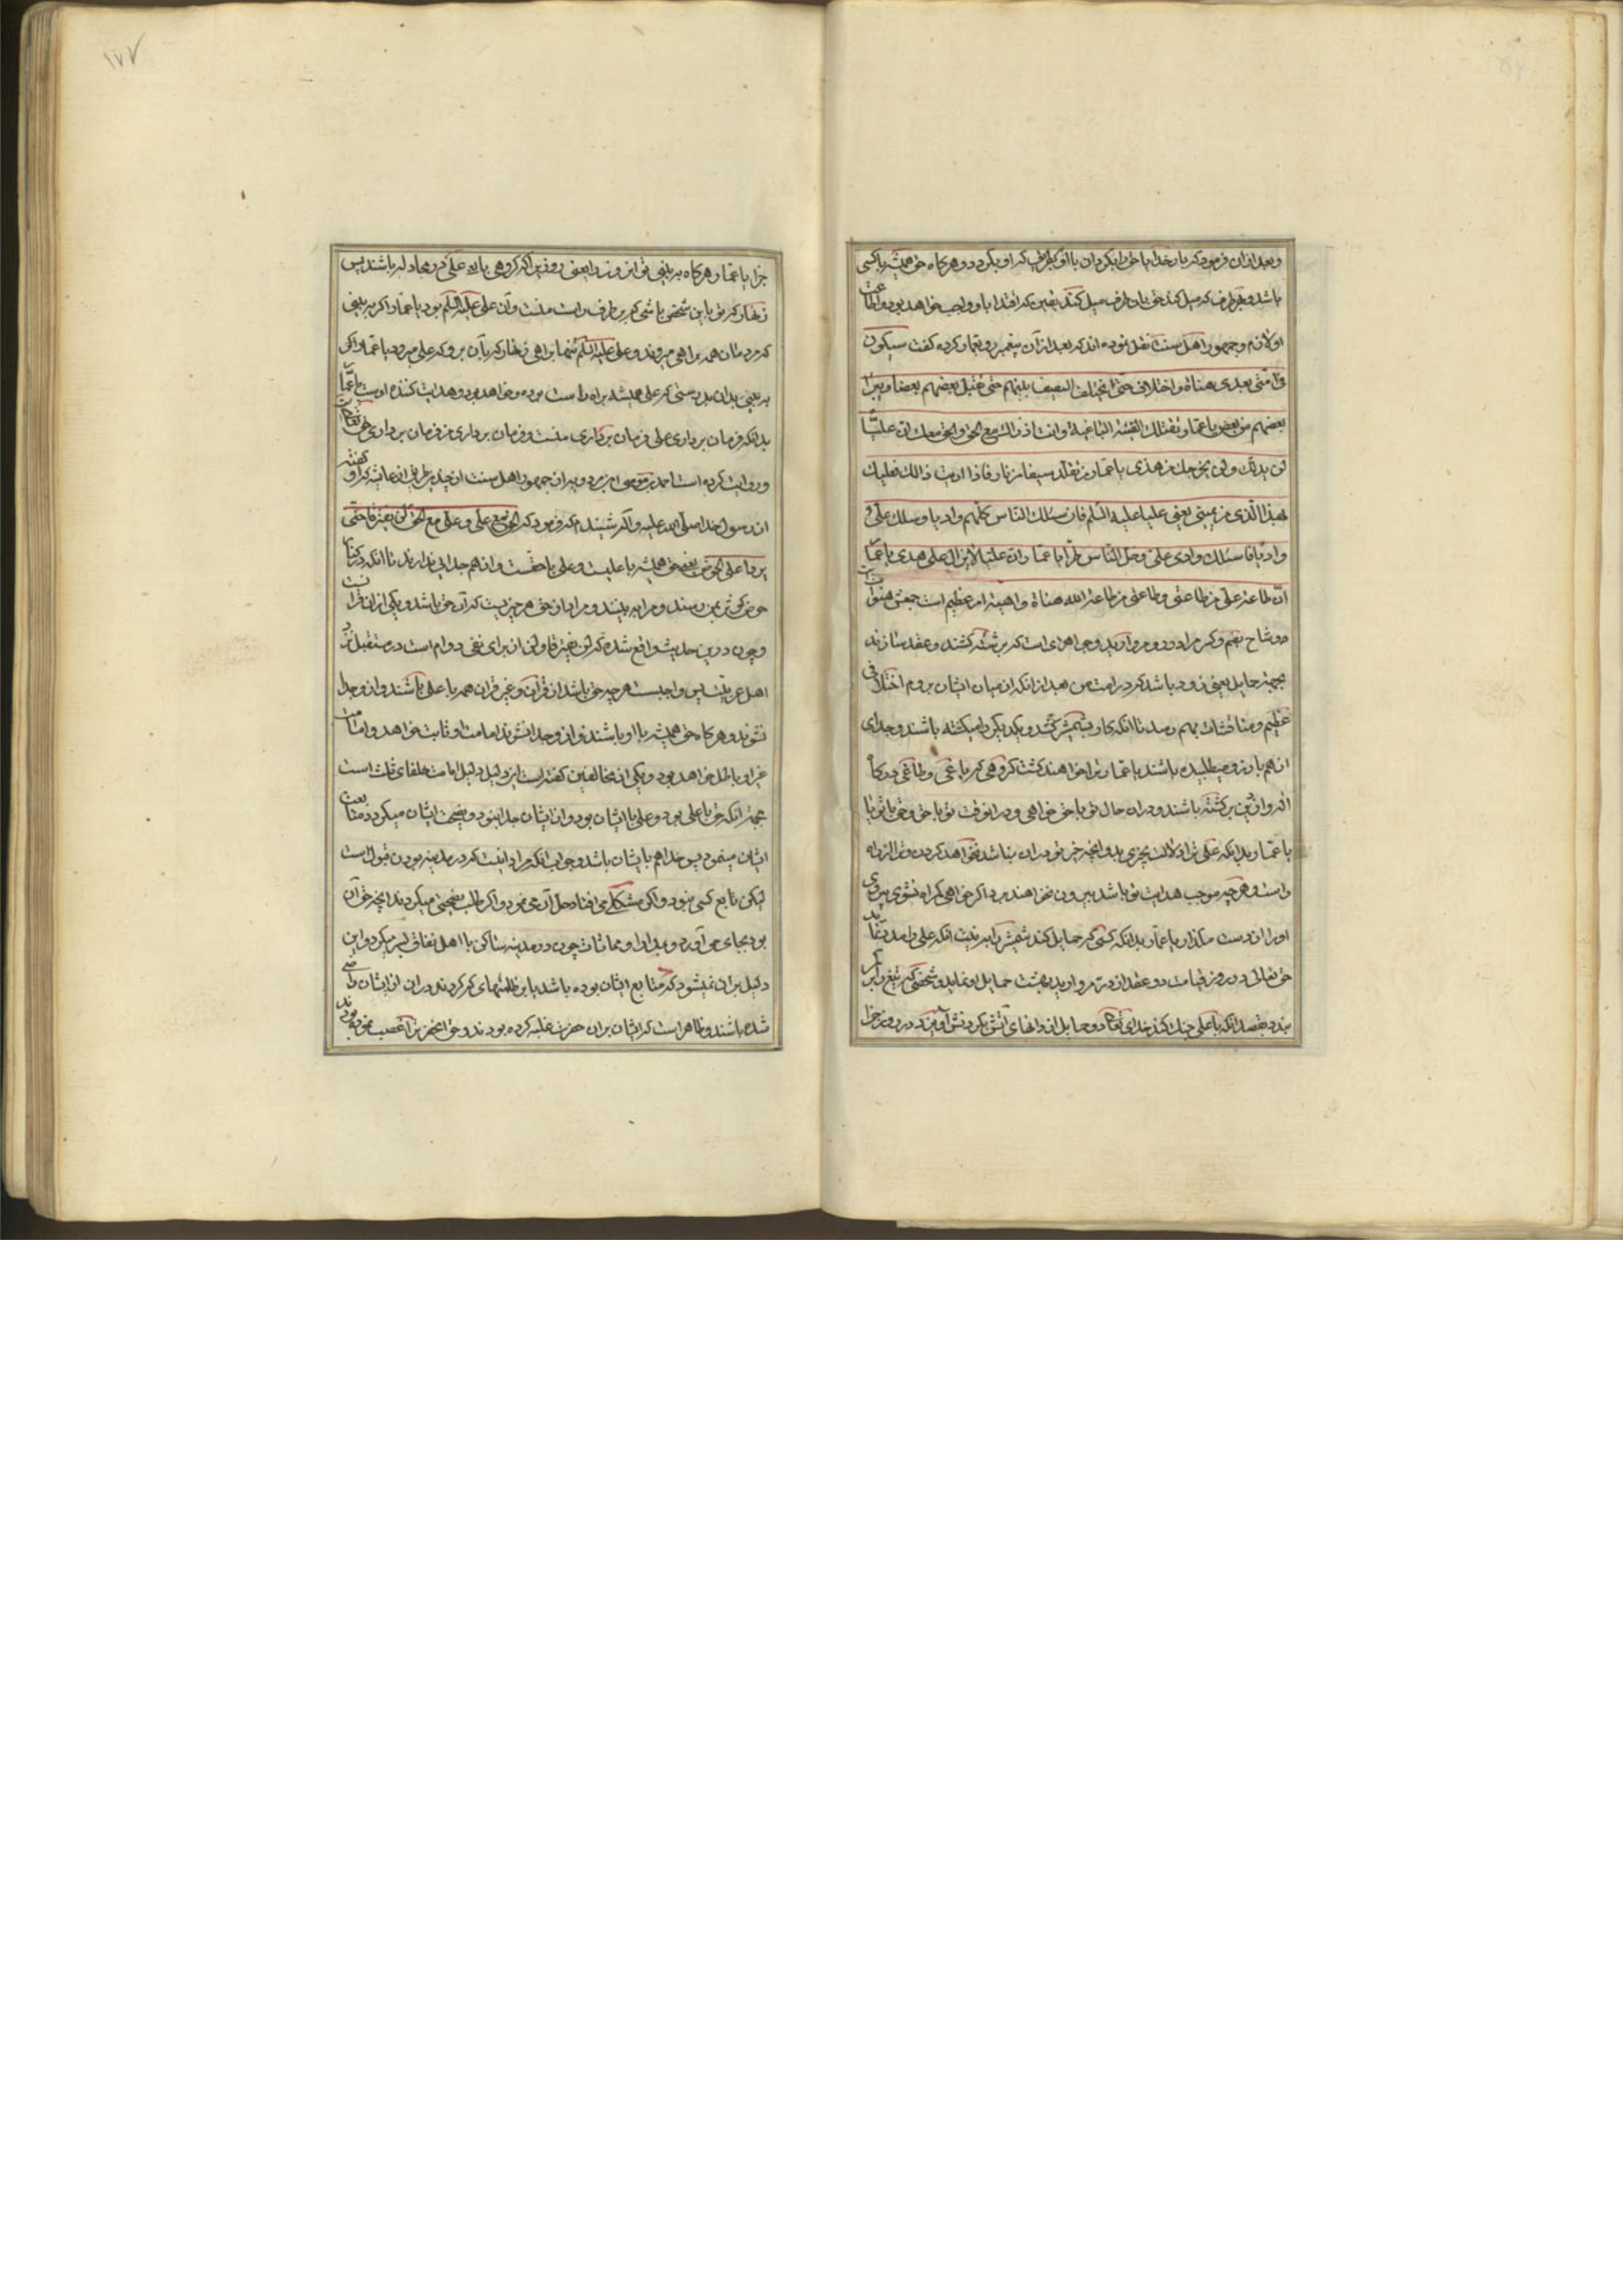 وبعد ازان فرمود که بار خدایا حق را بگردان با او بهر طرف که او بگردد و هرکاه حق همیشه با کسی
باشد و بهر طرف که میل کند حق بان طرف میل کند یقین که اقتدا باو واجب خواهد بود و اطاعت
او لازم و جمهور اهل سنت نقل نموده اند که بعد ازان پیغمبر رو بعمار کرده کفت سیکون
فی امتی بعدی هناة و اختلاف حتی یختلف السیف بینهم حتی یقتل بعضهم بعضا و یبرا
بعضهم من بعض یا عمار و تقتلک الفئة الباغیة و انت اذ ذالک مع الحق والحق معک ان علیا
لن یدلک ولن یخرجک من هدی یا عمار من تقلد سیفا من نار فاذا رایت ذالک فعلیک
بهذا الذی من یمینی یعنی علیا علیه السلم فان سلک الناس کلهم وادیا وسلک علی
وادیا فاسلک وادی علی وخل الناس طرا یا عمار ان علیا لا یزال علی هدی یا عمار
ان طاعة علی من طاعتی وطاعتی من طاعة الله هناة واهیه امر عظیم است جمعش هنوات
و وشاح بضم و کسر مراد دو مروارید و جواهری است که بر رشته کشند و عقد سازند
بجهة حمایل یعنی زود باشد که در امت من بعد از انکه از میان ایشان بروم اختلافی
عظیم و مناقشات بهم رسد تا انکه کار بشمشیر کشد و یکدیکر را میکشته باشند و جدای
از هم بارزو میطلبیده باشند یا عمار ترا خواهند کشت کروهی که باغی و طاغی درکاه
اله و از دین برکشته باشند و دران حال تو با حق خواهی و دران وقت تو با حق و حق با تو باشد
یا عمار بدانکه علی ترا دلالت بچیزی بد و انچه خیر تو دران نباشد نخواهد کردن و ترا از راه
راست و هر چه موجب هدایت تو باشد بیرون نخواهد برد اکر خواهی کمراه نشوی پیروی
او را از دست مکذار یا عمار بدانکه کسی که حمایل کند شمشیر را به نیت انکه علی را مدد نماید
حق تعالی در روز قیامت دو عقد از در مروارید بهشت حمایل او نماید و شخصی که تیغ را بر کمر
بندد بقصد انکه با علی جنک کند خدای تعالی دو حمایل از دانهای آتش بکردنش آویزد در روز جزا
جزا یا عمار و هرکاه به بینی تو این روز را یعنی روزی را که کروهی با علی در مجادله باشند پس
زنهار که تو با این شخص باشی که بر طرف راست منست و آن علی علیه السلم بود یا عمار اکر به بینی
که مردمان همه براهی میروند و علی علیه السلم تنها براهی زنهار که بآن برو که علی میرود یا عمار اکر
به بینی بدان بدرستی که علی همیشه براه راست بوده و خواهد بود و هدایت کننده اوست یا عمار
بدانکه فرمان برداری علی فرمان برداری منست و فرمان برداری من فرمان برداری حق تعالی
و روایت کرده است احمد بن موسی ابن مردویه از جمهور اهل سنت از چند طریق از عایشه که او کفته
از رسول خدا صلی الله علیه و آله شنیدم که فرمود که الحق مع علی و علی مع الحق لن یفترقا حتی
یردا علی الحوض یعنی حق همیشه با علیست و علی با حقست و از هم جدایی ندارند تا انکه در کنار
حوض کوثر بمن رسند و مرا به بینند و مراد از حق هر چیزیست که آن حق باشد و یکی از ان قرانست
و چون درین حدیث واقع شده که لن یفترقا و لن از برای نفی دوام است در مستقبل نزد
اهل عربیت پس واجبست هر چه حق باشد از قران و غیر قران همه با علی باشند و از و جدا
نشوند و هرکاه حق همیشه با او باشند و از و جدا نشوند امامت او ثابت خواهد و امامت
غیر او باطل خواهد بود و یکی از مخالفین کفته است این دلیل دلیل امامت خلفای ثلث است
بجهة انکه حق با علی بود و علی با ایشان بود و از ایشان جدا نبود و نصیحت ایشان میکرد و متابعت
ایشان مینمود پس حق هم با ایشان باشد و جواب انکه مراد اینست که در مدینه بودن قبول است
لیکن تابع کسی نبود و اکر مشکلی می افتاد حل آن می نمود و اکر طلب نصیحتی میکردند انچه حق آن
بود بجای می آورد و مدارا و مماشات چون در مدینه ساکن با اهل نفاق بسر میکرد و این
دلیل بران نمیشود که متابع ایشان بوده باشد یا بر ظلمهای که کردند دران از ایشان راضی
شده باشند و ظاهر است که ایشان بران حضرت غلبه کرده بودند و حق انحضرت را غصب نموده بودند